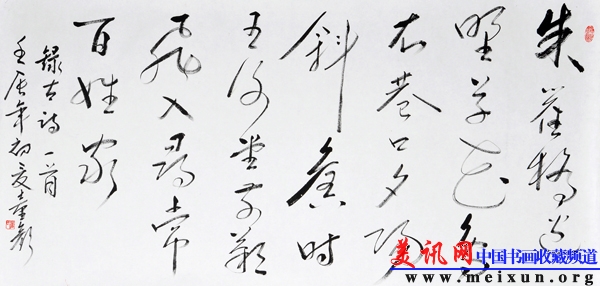 朱雀橋邊
野草花烏
衣巷口夕陽
斜舊時
王謝堂前燕
飛入尋常
百姓家
錄古詩一首
壬辰年初夏童
美讯网 中国书画收藏频道
www.meixun.org